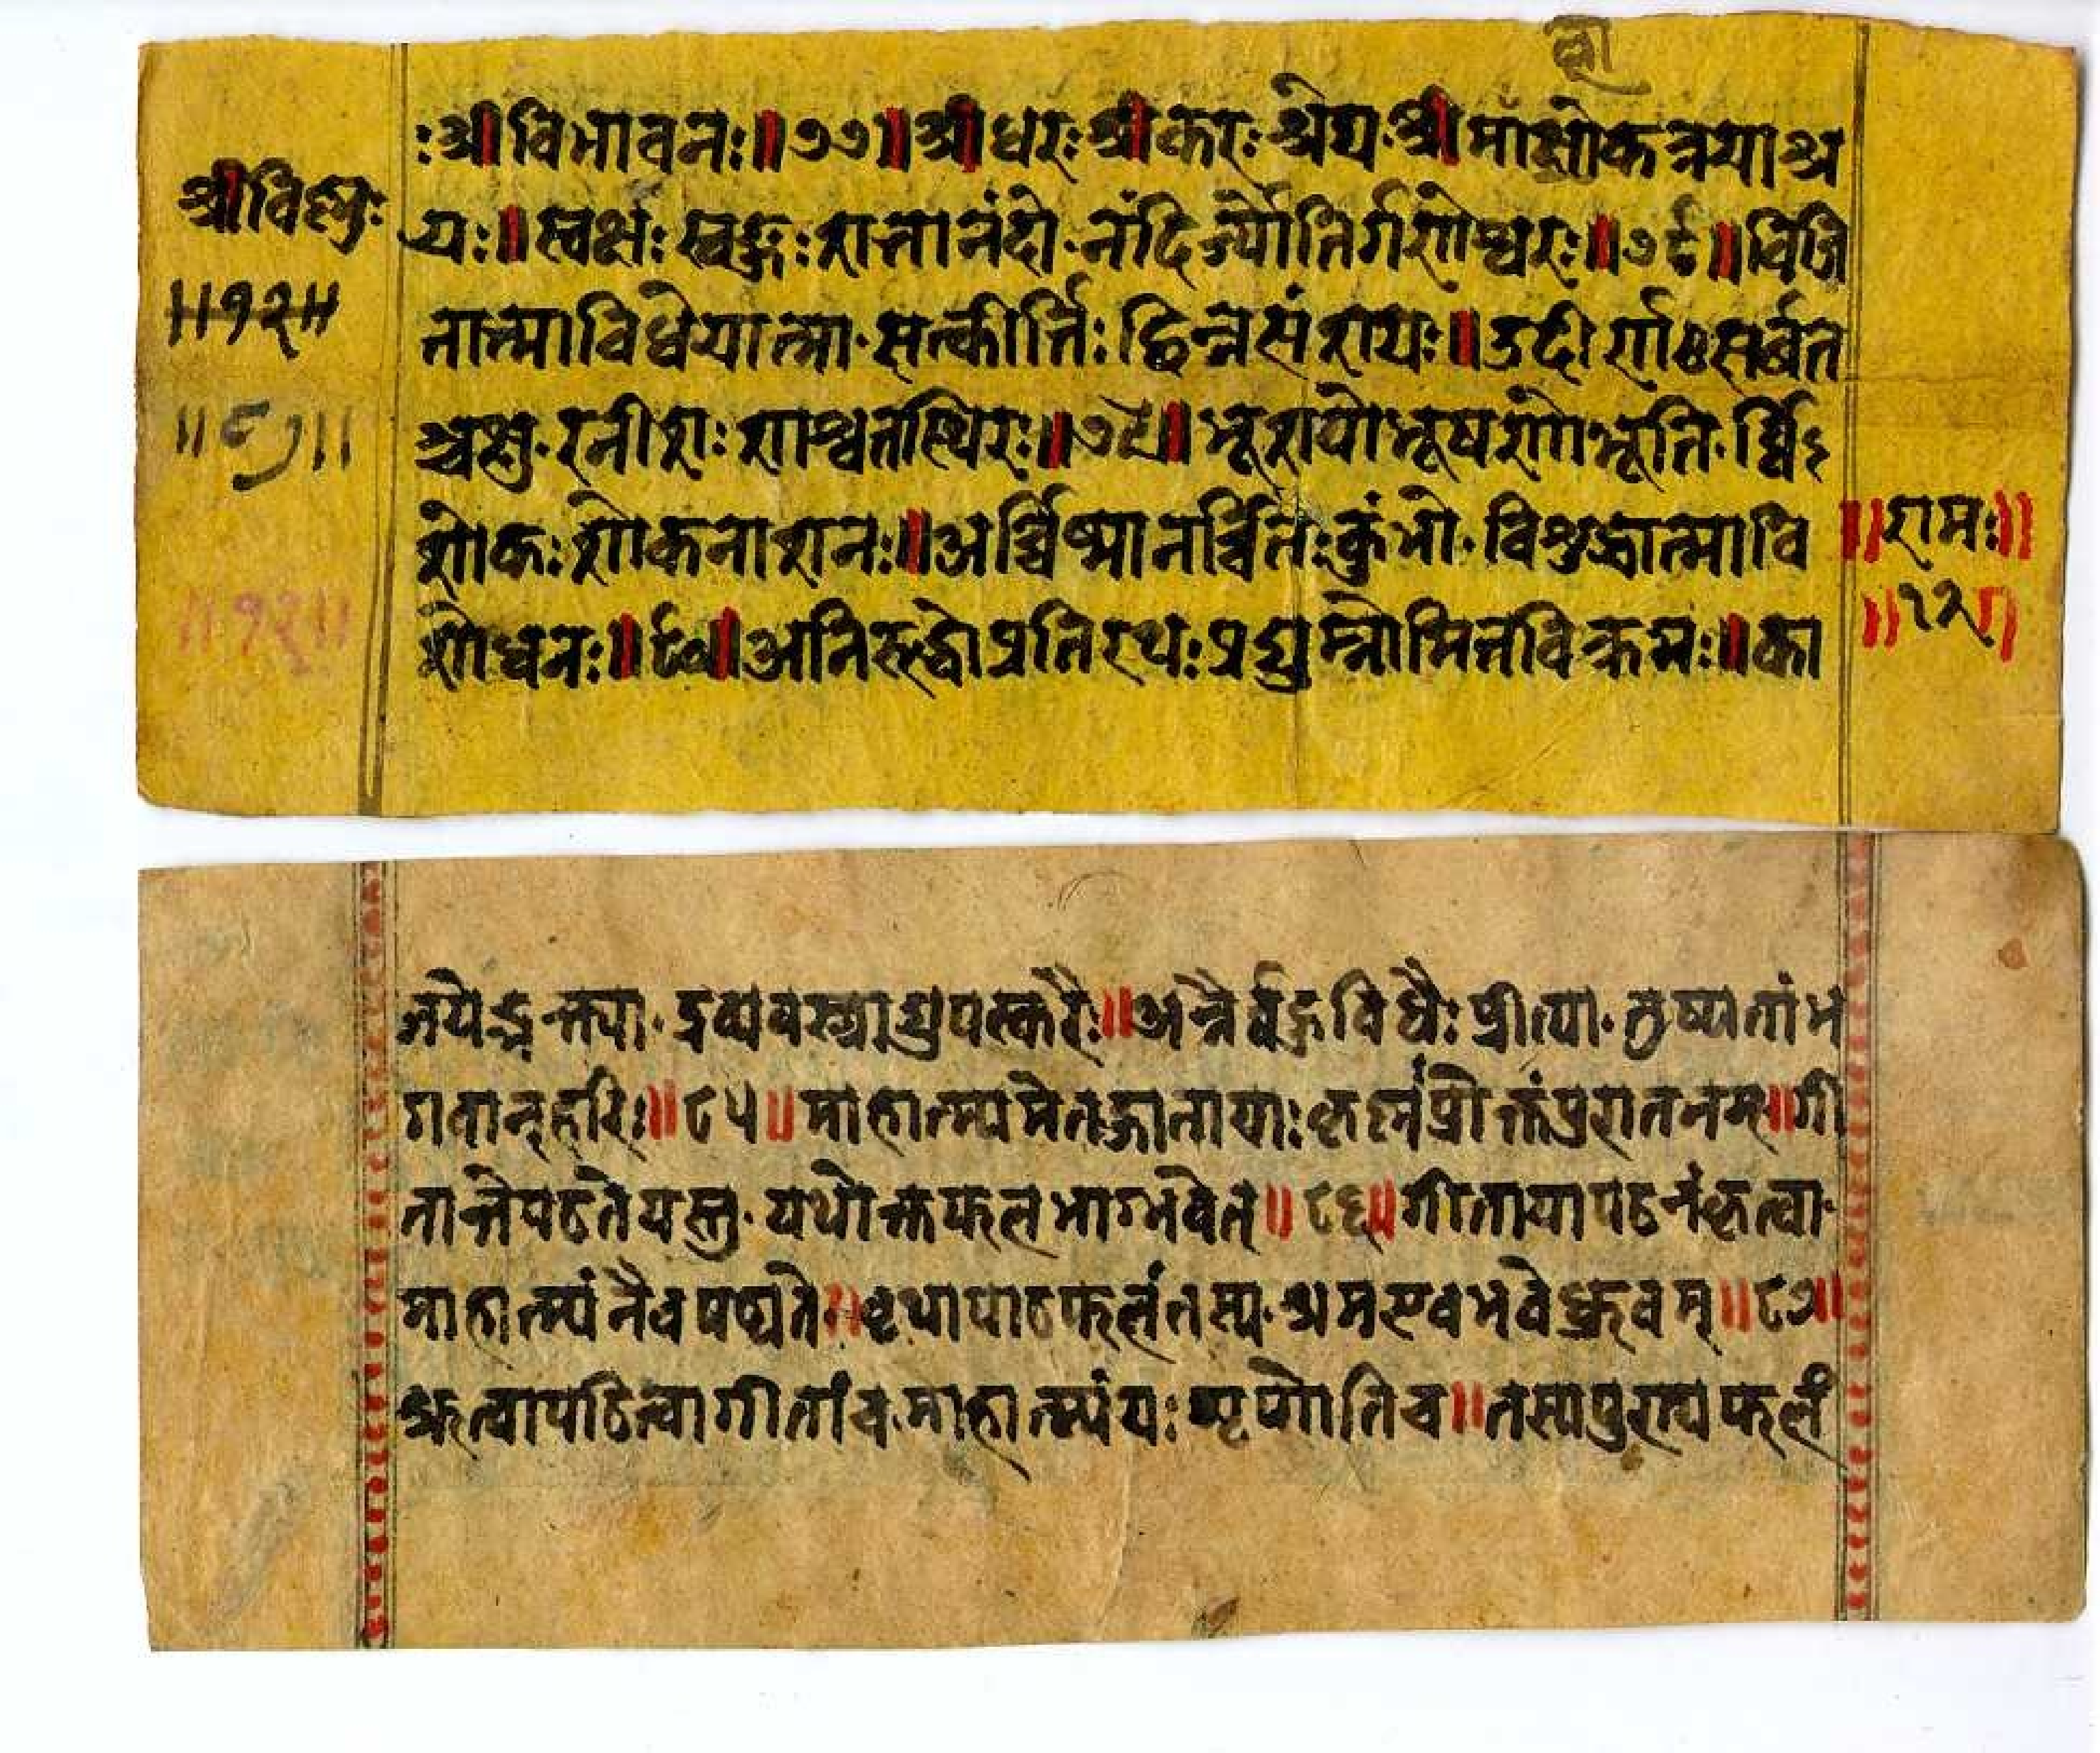 ल्लो
:श्रीविभावनः॥७७॥श्रीधरः श्रीकरः श्रेय श्रीमाँलोकत्रयाश्र
श्रीविष्णुः
यः॥स्वक्षः स्वङ्गः शतानंदो नंदिर्ज्योतिर्गणेश्वरः॥७८॥विजि
॥१२॥
तात्माविधेयात्मा सत्कीर्त्तिः छिन्नसंशयः॥उदीर्णः सर्वत
॥८७॥
श्चक्षु रनीशः शाश्वतस्थिरः॥७९॥भूशयोभूषणोभूति र्वि
शोकः शोकनाशनः॥अर्च्चिष्मानर्च्चितः कुंभो विशुद्धात्मावि
॥रामः॥
॥१२॥
शोधनः॥८०॥अनिरुद्धोप्रतिरथः प्रद्युम्नोमितविक्रमः॥का
॥१२॥
जयेद्भक्त्या द्रव्यवस्त्राद्युपस्करैः॥अन्नैर्बहुविधैः प्रीत्या तुष्यतांभ
गवान्हरिः॥८५॥माहात्म्यमेतद्गीतायाः कृष्णप्रोक्तंपुरातनम्॥गी
तान्तेपठतेयस्तु यथोक्तफलभाग्भवेत्॥८६॥गीतायापठनंकृत्वा
माहात्म्यंनैवपठ्यते॥वृथापाठफलंतस्य श्रमएवभवेद्ध्रुवम्॥८७॥
श्रुत्वापठित्वागीतांच माहात्म्यंयः शृणोतिच॥तस्यपुण्यफलं